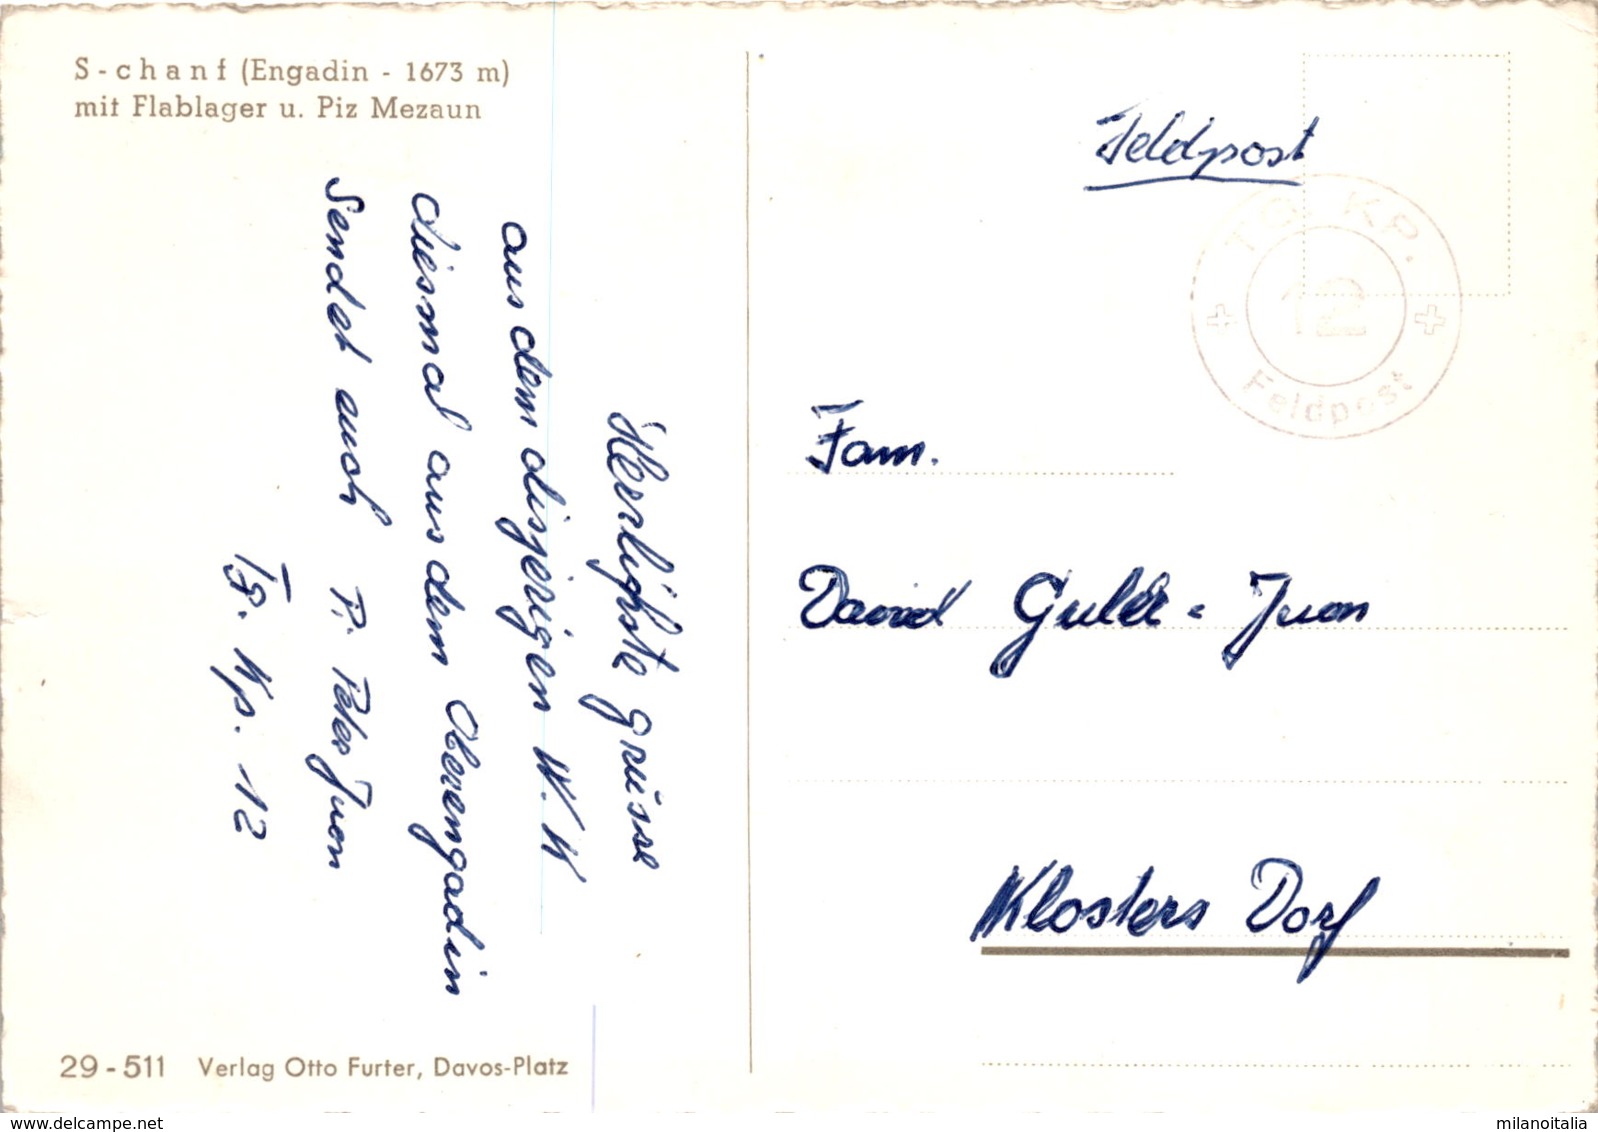 S-chanf (Engadin - 1673 m)
mit Flablager u. Piz Mezaun
Herlichste grüsse
aus dem disjerigen W.K
diesmal aus dem Oberengadin
Sendet auch P. Peter Juon
Tg. Kp. 12
29-511 Verlag Otto Furter, Davos-Platz
Feldpost
TG. KP.
12
Feldpost
Fam.
David Guler-Juon
Klosters Dorf
www.delcampe.net
milanoitalia